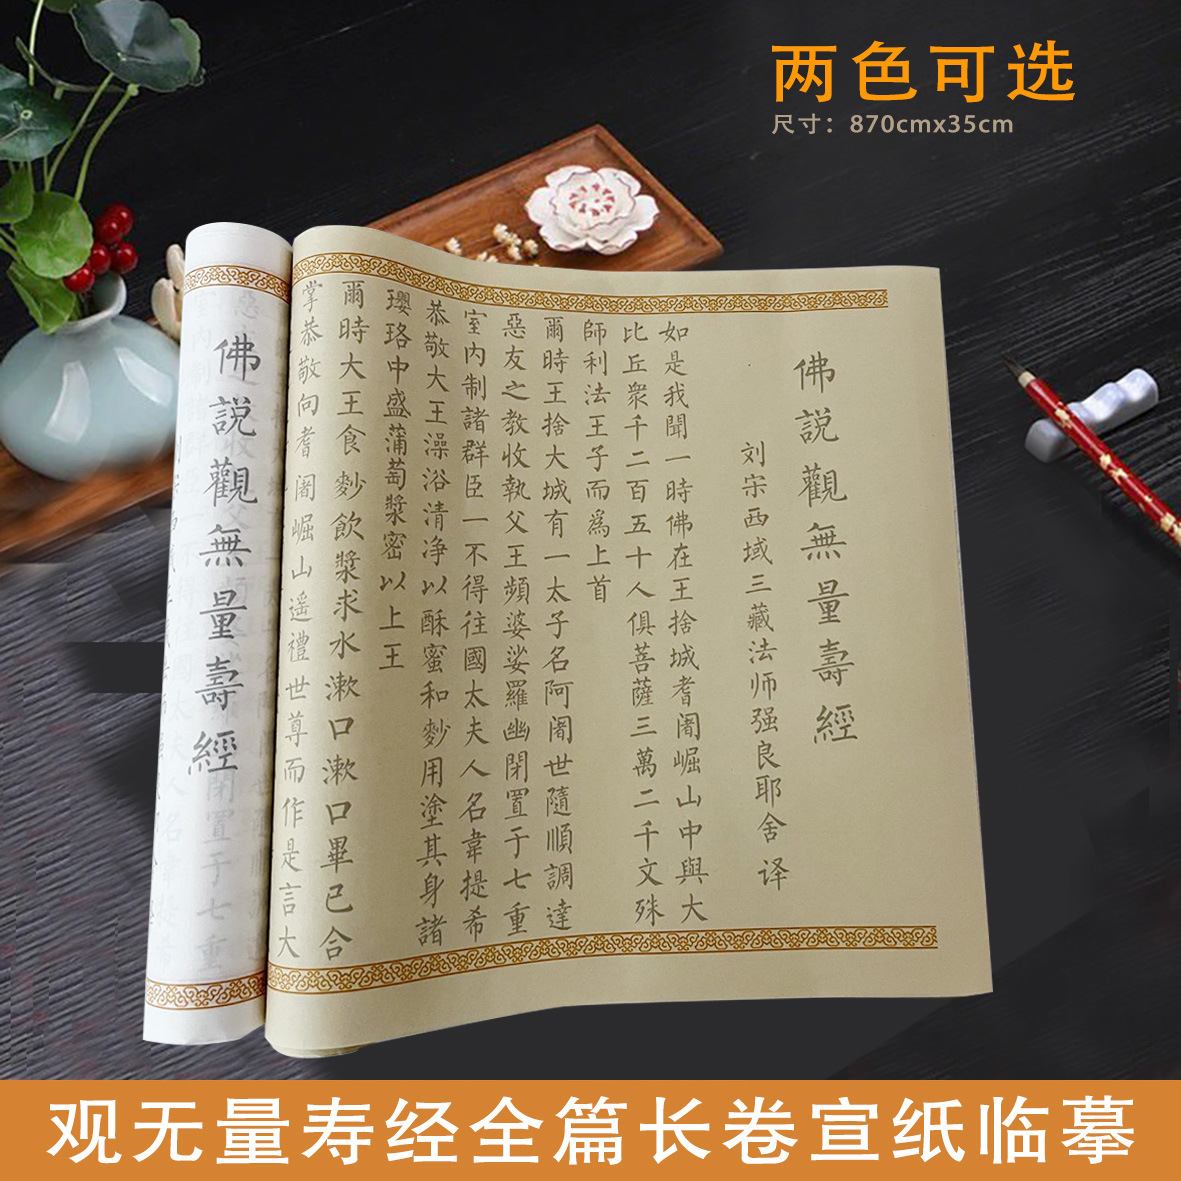 两色可选
尺寸：870cmx35cm
佛說觀無量壽經
刘宋西域三藏法师强良耶舍 译
如是我聞一時佛在王捨城耆闍崛山中與大
比丘衆千二百五十人俱菩薩三萬二千文殊
師利法王子而爲上首
爾時王捨大城有一太子名阿闍世隨順調達
惡友之教收執父王頻婆娑羅幽閉置于七重
室内制諸群臣一不得往國太夫人名韋提希
恭敬大王澡浴清净以酥蜜和麨用塗其身諸
瓔珞中盛蒲萄漿密以上王
爾時大王食麨飲漿求水漱口漱口畢已合
掌恭敬向耆闍崛山遥禮世尊而作是言大
佛說觀無量壽經
观无量寿经全篇长卷宣纸临摹